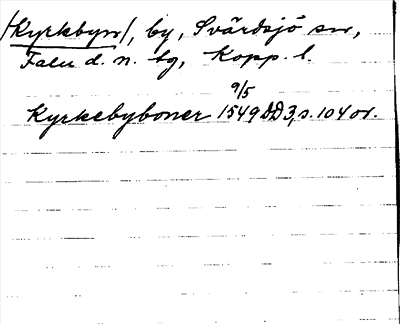 /Kyrkbyn/, by, Svärdsjö sn,
Falu d. n. tg, Kopp. l.
9/5
Kyrkebyboner 1549 DD3, s. 104 or.